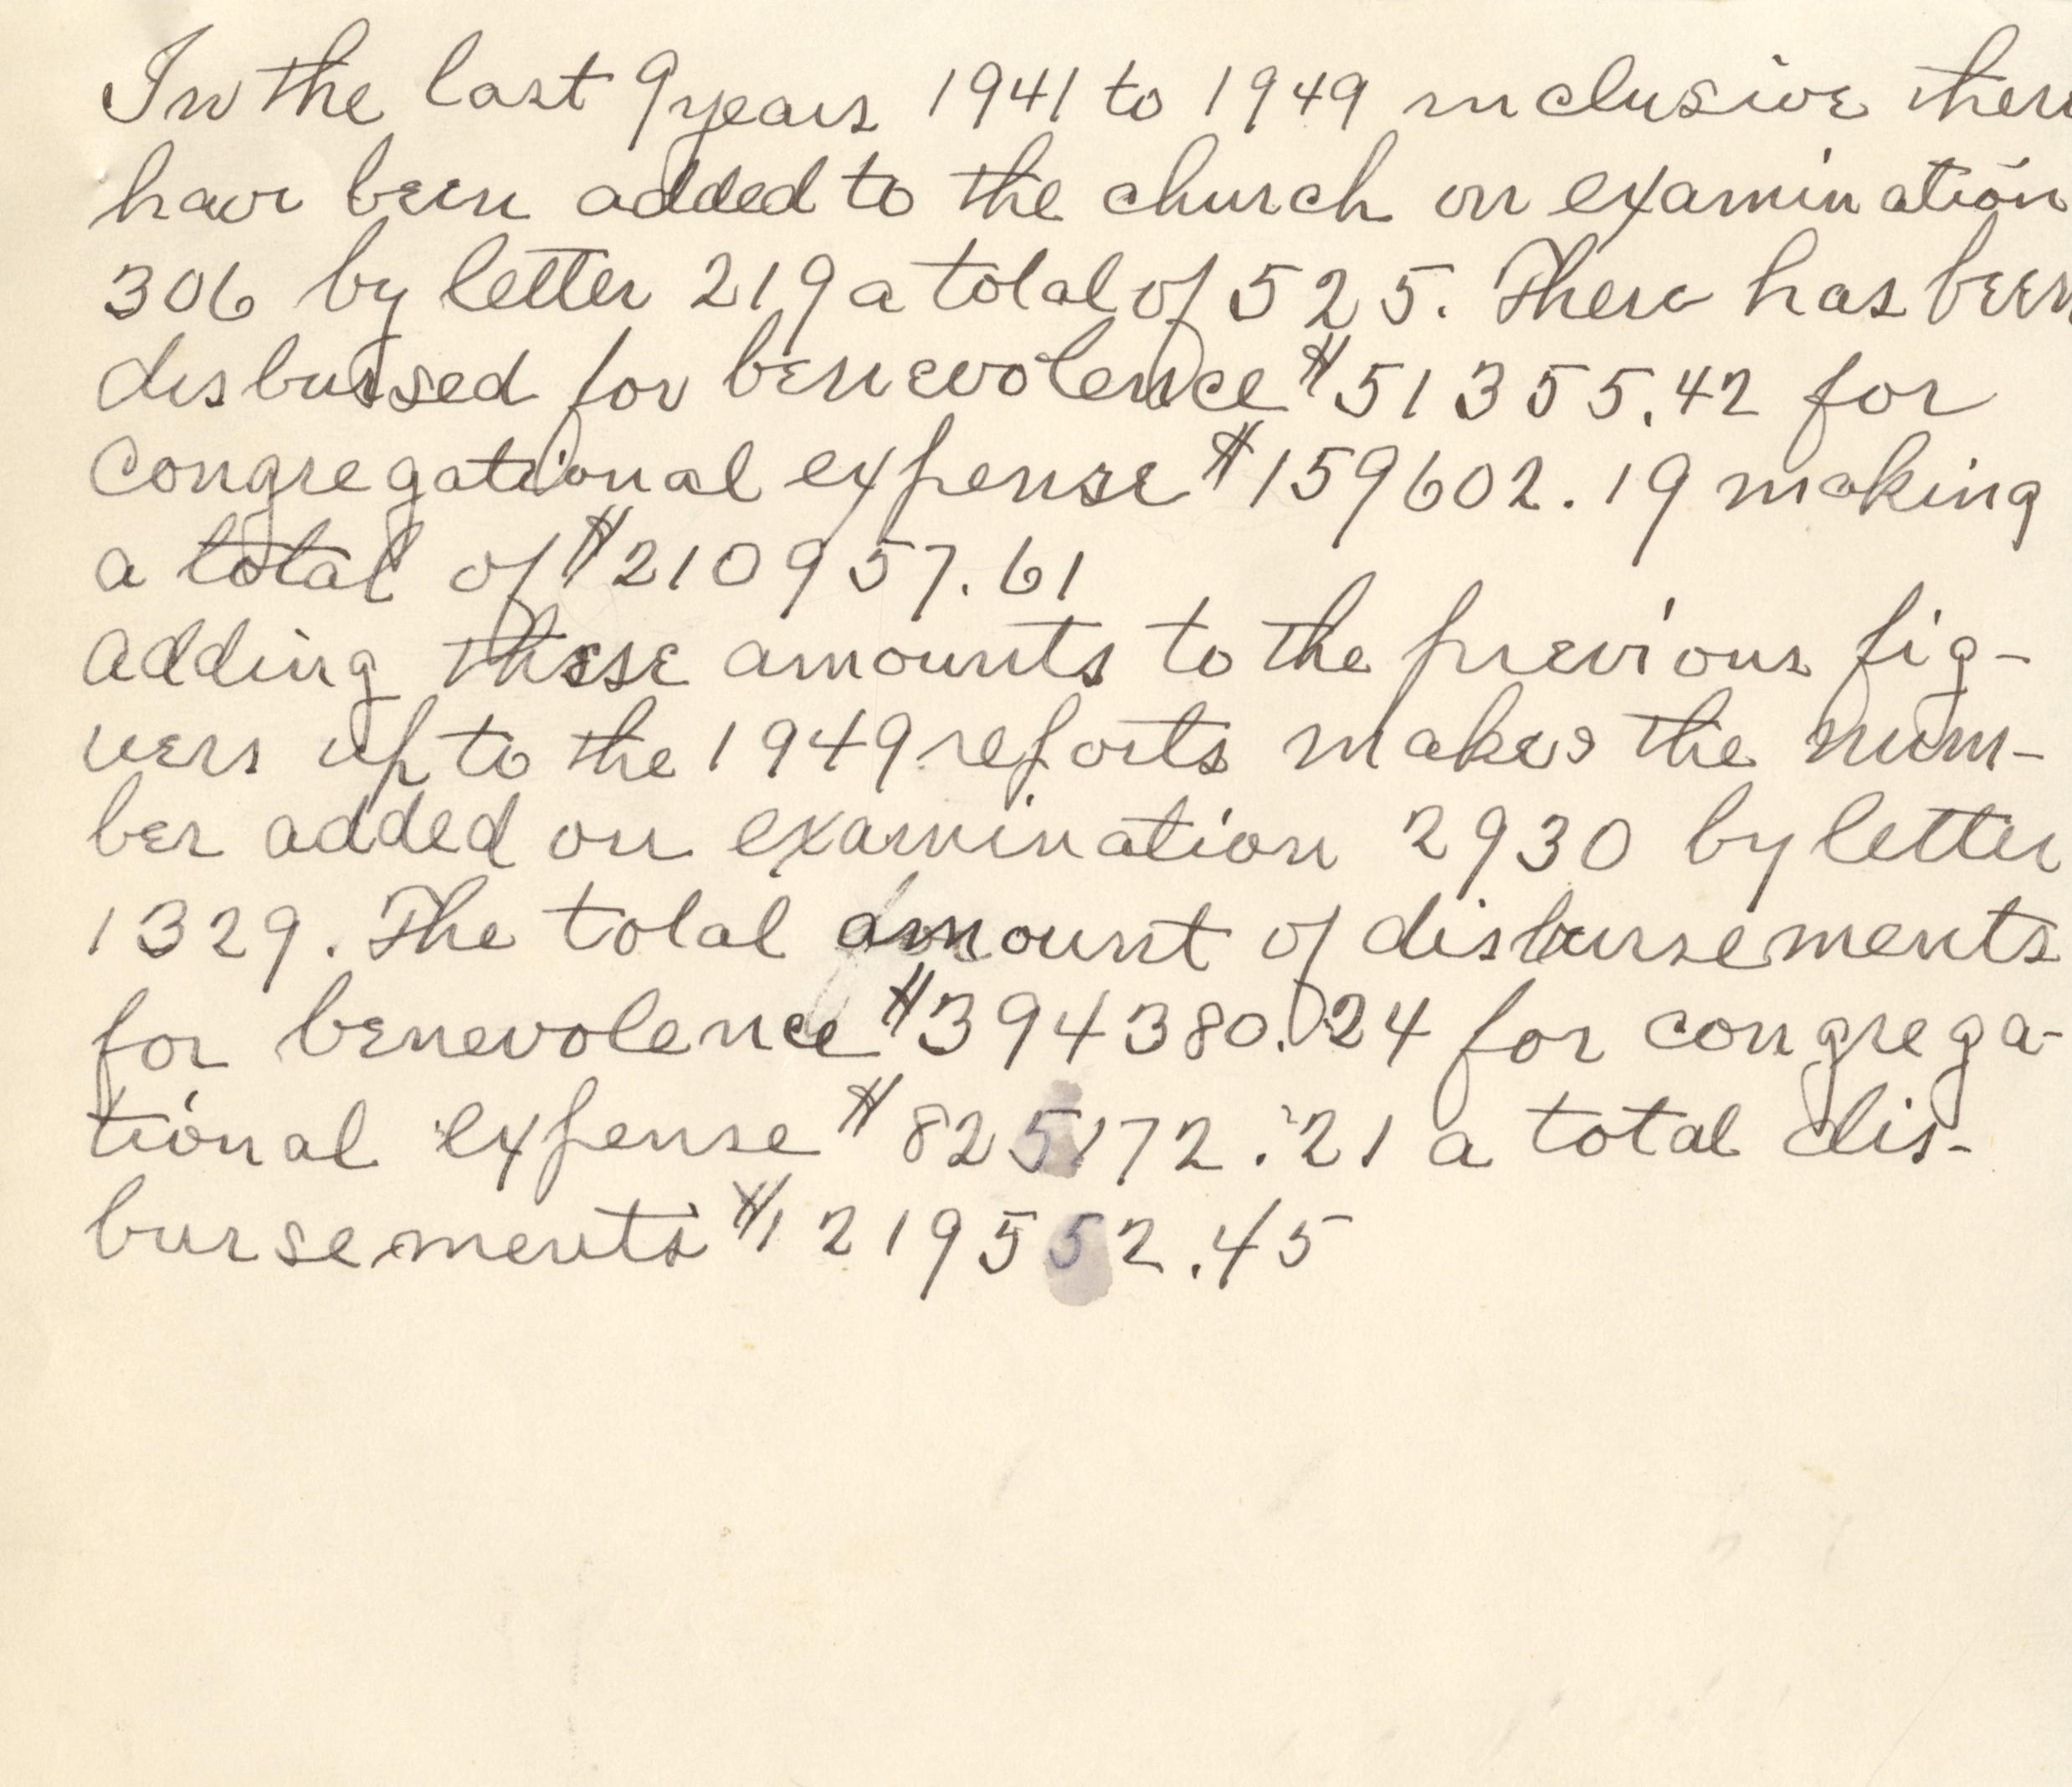 In the last 9 years 1941 to 1949 inclusive there
have been added to the church on examination
306 by letter 219 a total of 525. There has been
disbursed for benevolence $51355.42 for
Congregational expense $159602.19 making
a total of $210957.61
Adding these amounts to the previous fig-
uers up to the 1949 reports makes the num-
ber added on examination 2930 by letter
1329. The total amount of disbursements
for benevolence $394380.24 for congrega-
tional expense $825172.21 a total dis-
bursements $1219552.45